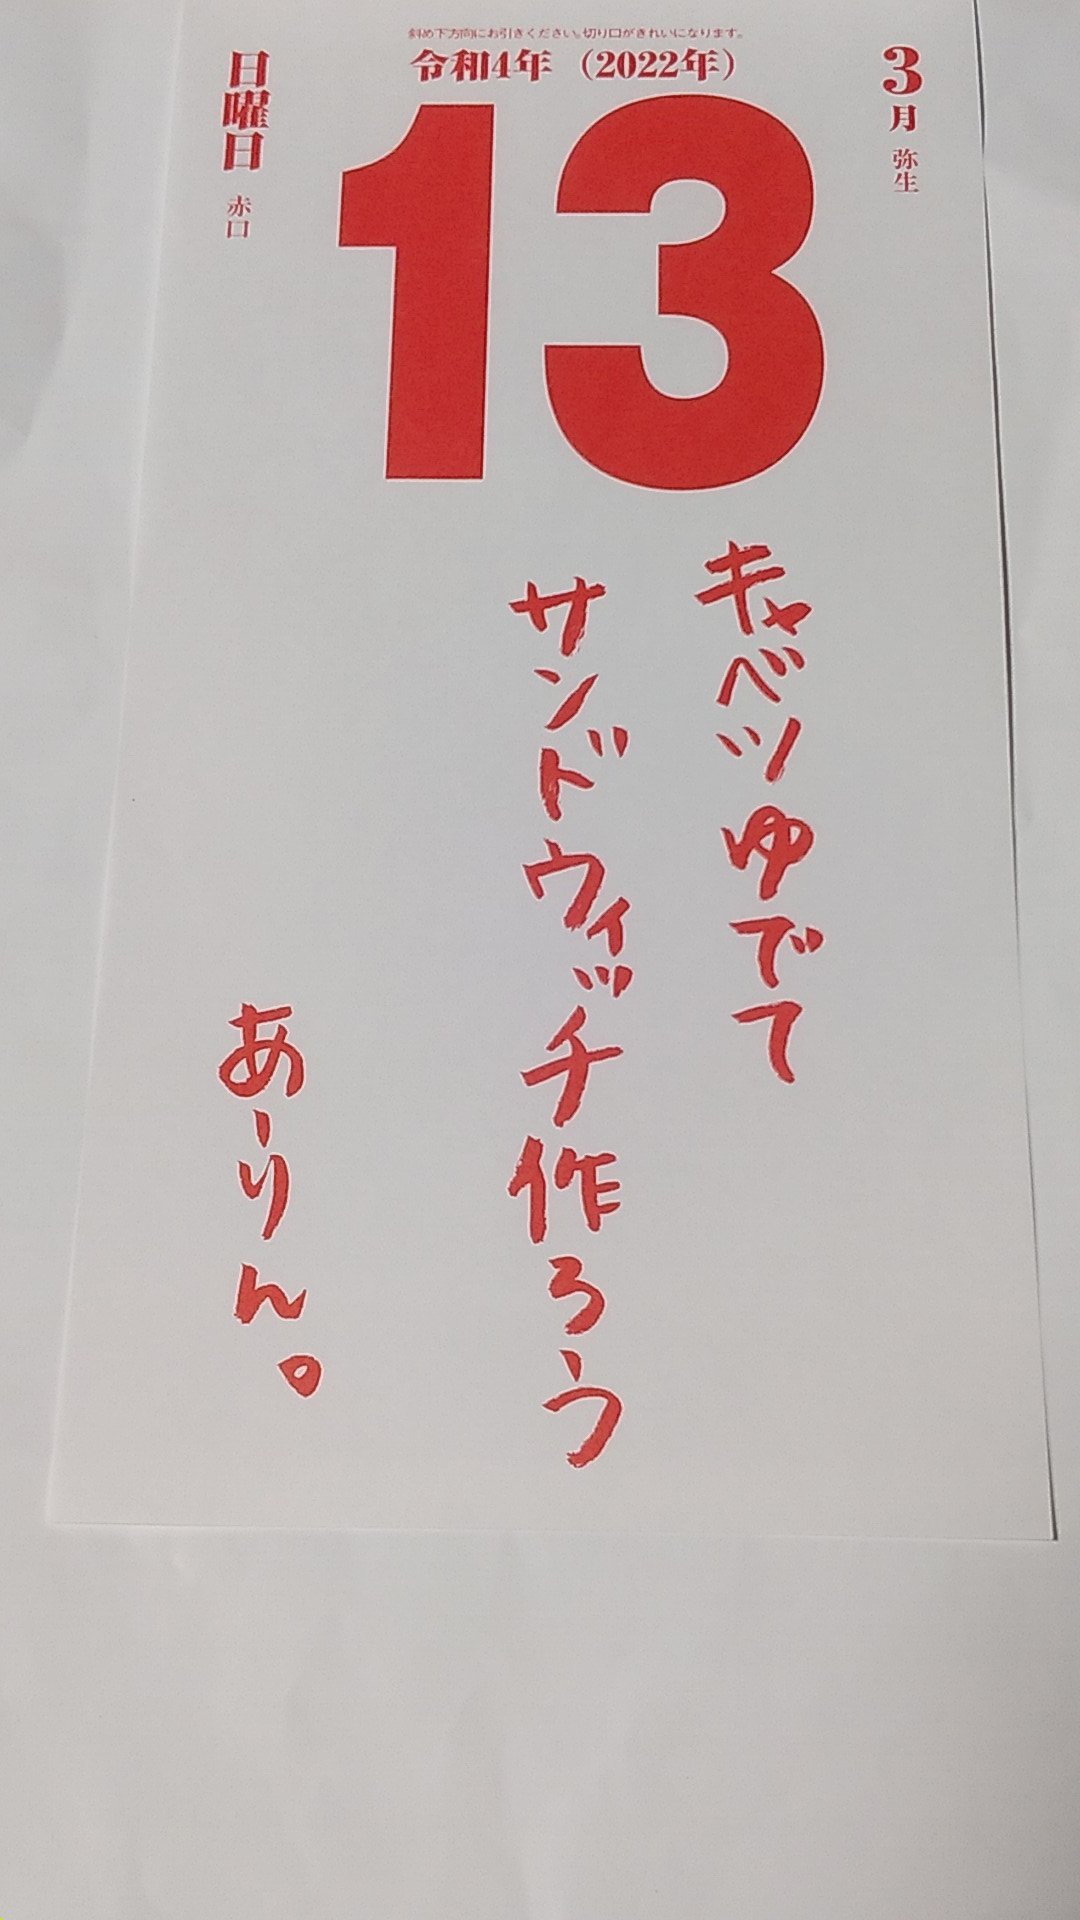 斜め下方向にお引きください。切り口がきれいになります。
令和4年（2022年）
3月 弥生
13
日曜日 赤口
キャベツゆでて
サンドウィッチ作ろう
あーりん。